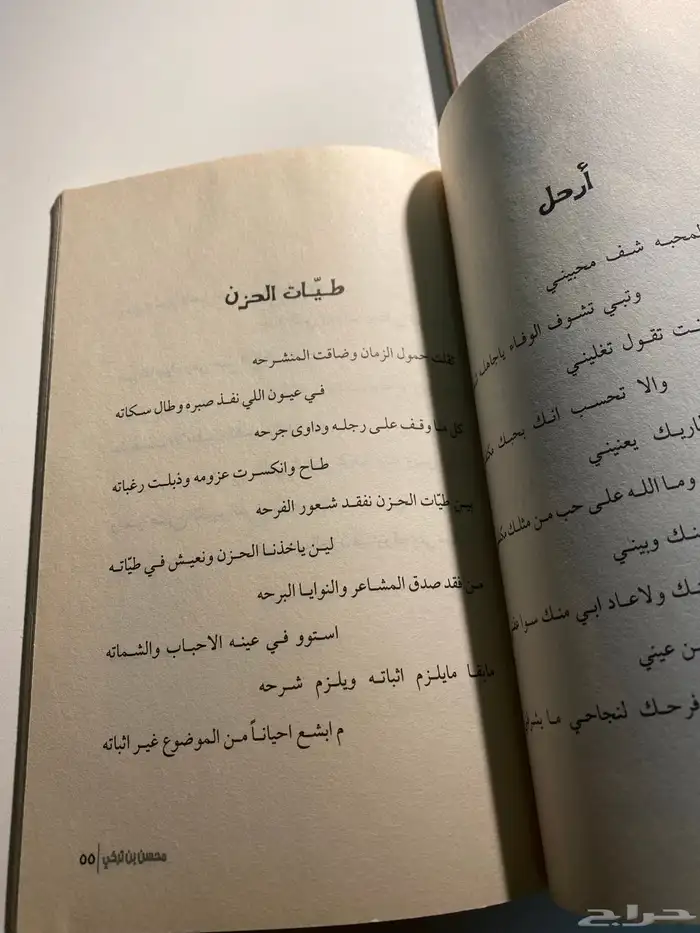 أرحل
لمحبه شف محبيني
وتبي تشوف الوفاء
نت تقول تغليني
والا تحسب انك بحبك
اريك يعنيني
وما الله على حب من مثلك
نك وبيني
ك ولاعاد ابي منك
ن عيني
فرحك لنجاحي ما
طيّات الحزن
ثقلت حمول الزمان وضاقت المنشرحه
في عيون اللي نفذ صبره وطال سكاته
كل ما وقف على رجله وداوى جرحه
طاح وانكسرت عزومه وذبلت رغباته
بين طيّات الحزن نفقد شعور الفرحه
لين ياخذنا الحزن ونعيش في طيّاته
من فقد صدق المشاعر والنوايا البرحه
استوو في عينه الاحباب والشماته
مابقا مايلزم اثباته ويلزم شرحه
م ابشع احياناً من الموضوع غير اثباته
محسن بن تركي | ٥٥
حراج